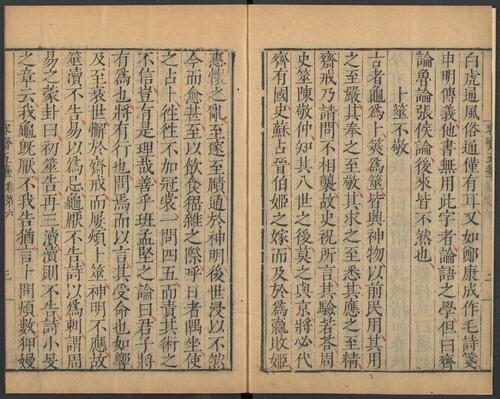 白虎通風俗通僅有耳又如鄭康成作毛詩箋
申明傳義他書無用此字者論語之學但曰齊
論魯論張侯論後來皆不然也
卜筮不敬
古者龜為卜筴為筮皆與神物以前民用其用
之至嚴其奉之至敬其求之至悉其應之至精
齋戒乃請問不相襲故史祝所言其驗若荅周
史筮陳敬仲知其八世之後莫之與京將必代
齊有國史蘇占晉伯姬之嫁而及於為嬴敗姬
惠懷之亂至邃至賾通於神明後世浸以不然
今而愈甚至以飲食猥雜之際呼日者隅坐使
之占卜徃徃不加冠裳一問四五而責其術之
不信豈有是理哉善乎班孟堅之論曰君子將
有為也將有行也問焉而以言其受命也如響
及至衰世懈於齋戒而屢煩卜筮神明不應故
筮瀆不告易以為忌龜厭不告詩以為刺謂周
易之蒙卦曰初筮告再三瀆瀆則不告詩小旻
之章云我龜既厭不我告猶言卜問煩數狎嫚
卷第六
三